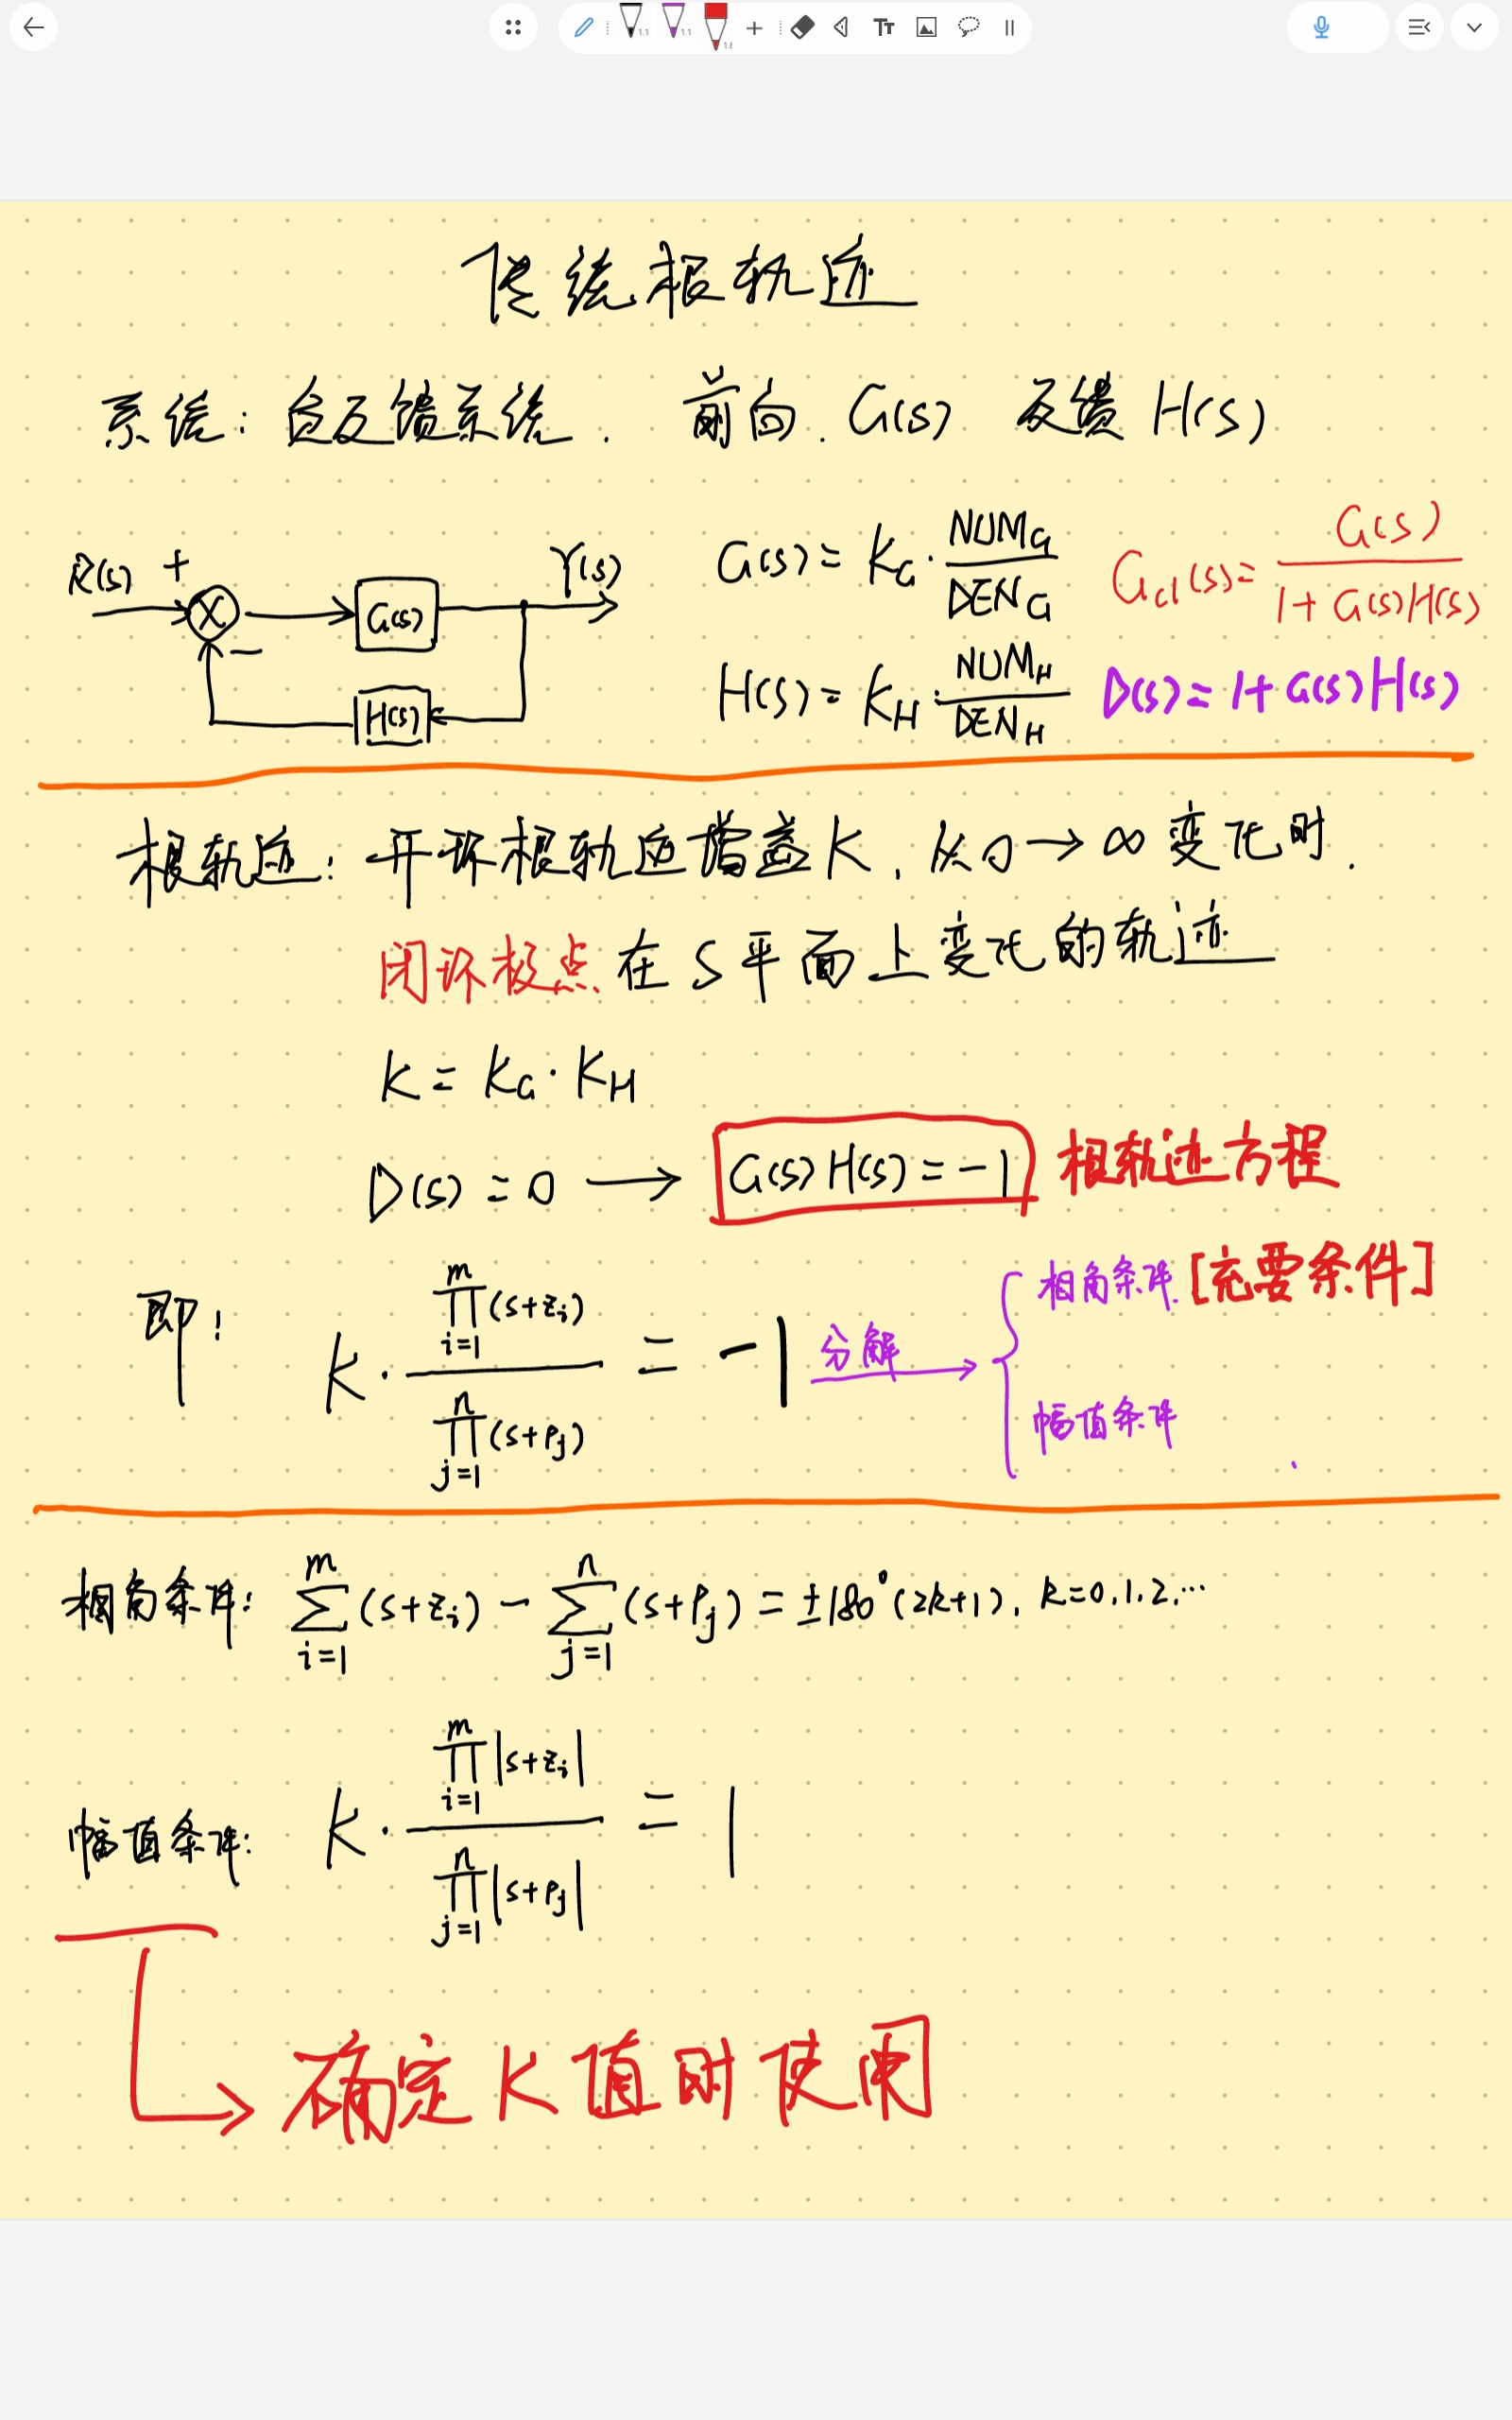 传统根轨迹
系统：负反馈系统. 前向. G(s) 反馈 H(s)
R(s) + Y(s)
G(s)
−
H(s)
G(s) = K_G · NUM_G / DEN_G
G_cl(s) = G(s) / 1 + G(s)H(s)
H(s) = K_H · NUM_H / DEN_H
D(s) = 1 + G(s)H(s)
根轨迹：开环根轨迹增益K, 从0→∞变化时.
闭环极点在S平面上变化的轨迹
K = K_G · K_H
D(s) = 0 → G(s)H(s) = −1 根轨迹方程
即: K · ∏_{i=1}^{m}(s+z_i) / ∏_{j=1}^{n}(s+p_j) = −1 分解→
相角条件 [充要条件]
幅值条件
相角条件: ∑_{i=1}^{m}(s+z_i) − ∑_{j=1}^{n}(s+p_j) = ±180°(2k+1), k=0,1,2,…
幅值条件: K · ∏_{i=1}^{m}|s+z_i| / ∏_{j=1}^{n}|s+p_j| = 1
确定K值时使用